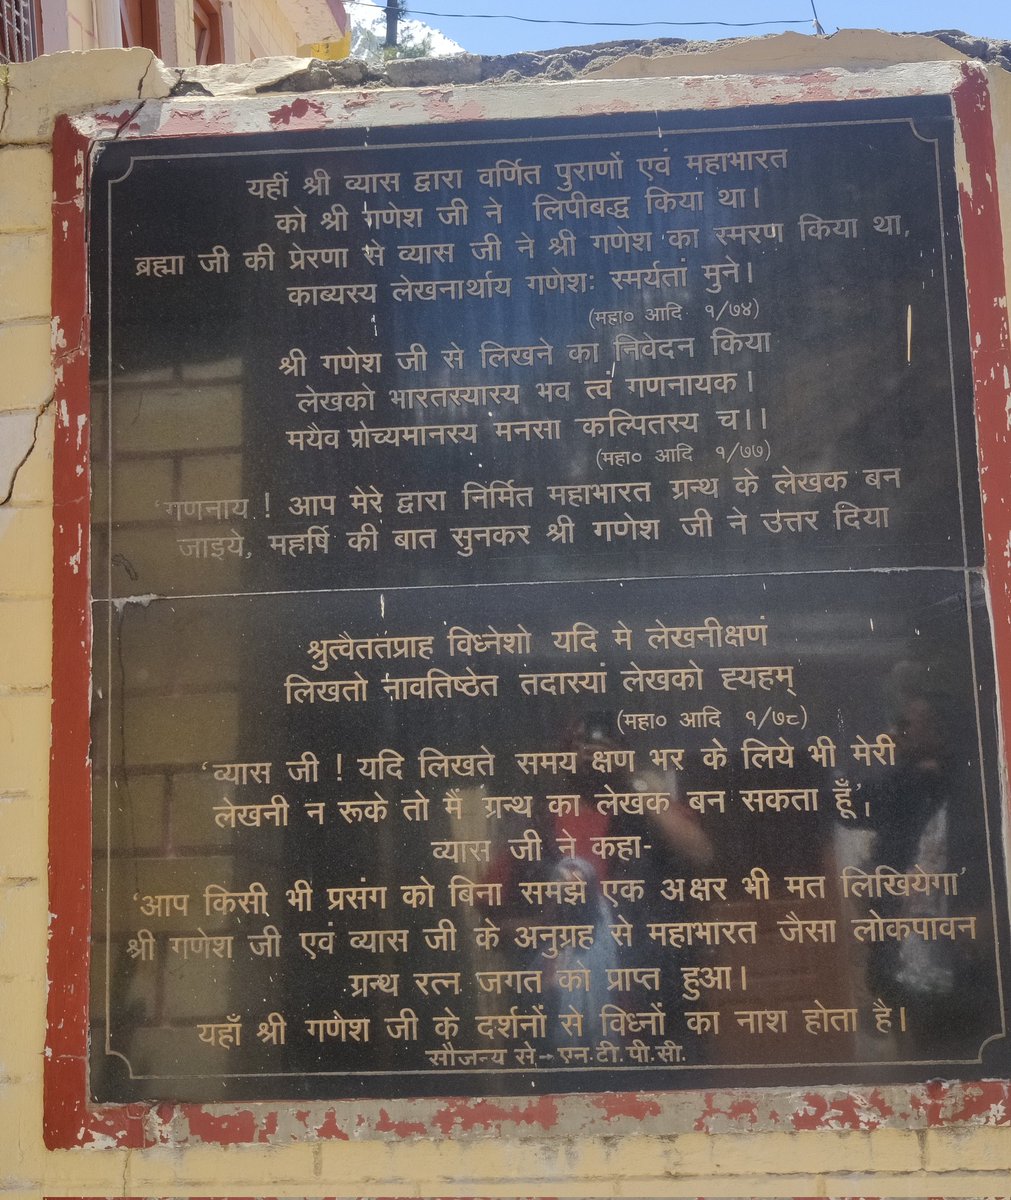 यहीं श्री व्यास द्वारा वर्णित पुराणों एवं महाभारत
को श्री गणेश जी ने लिपीबद्ध किया था।
ब्रह्मा जी की प्रेरणा से व्यास जी ने श्री गणेश का स्मरण किया था,
काव्यस्य लेखनार्थाय गणेशः स्मर्यतां मुने।
(महा० आदि १/७४)
श्री गणेश जी से लिखने का निवेदन किया
लेखको भारतस्यास्य भव त्वं गणनायक।
मयैव प्रोच्यमानस्य मनसा कल्पितस्य च।।
(महा० आदि १/७७)
'गणनाय ! आप मेरे द्वारा निर्मित महाभारत ग्रन्थ के लेखक बन
जाइये, महर्षि की बात सुनकर श्री गणेश जी ने उत्तर दिया
श्रुत्वैततप्राह विध्नेशो यदि मे लेखनीक्षणं
लिखतो नावतिष्ठेत तदास्यां लेखको ह्यहम्
(महा० आदि १/७८)
'व्यास जी ! यदि लिखते समय क्षण भर के लिये भी मेरी
लेखनी न रूके तो मैं ग्रन्थ का लेखक बन सकता हूँ',
व्यास जी ने कहा-
'आप किसी भी प्रसंग को बिना समझे एक अक्षर भी मत लिखियेगा'
श्री गणेश जी एवं व्यास जी के अनुग्रह से महाभारत जैसा लोकपावन
ग्रन्थ रत्न जगत को प्राप्त हुआ।
यहाँ श्री गणेश जी के दर्शनों से विध्नों का नाश होता है।
सौजन्य से-एन.टी.पी.सी.